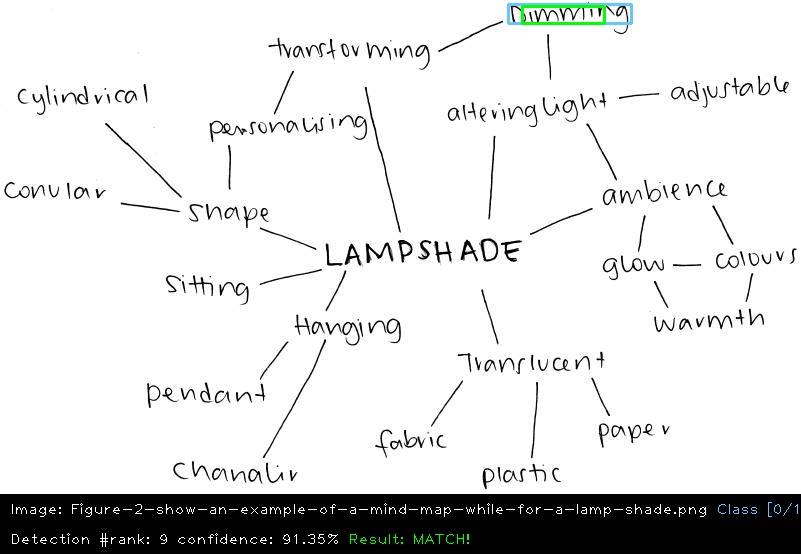 Dimming
transforming
adjustable
Cylindrical
altering light
personalising
conular
ambience
shape
LAMPSHADE
glow
colours
sitting
warmth
Hanging
Translucent
pendant
fabric
paper
chanalir
plastic
Image: Figure-2-show-an-example-of-a-mind-map-while-for-a-lamp-shade.png Class [0/1
Detection #rank: 9 confidence: 91.35% Result: MATCH!